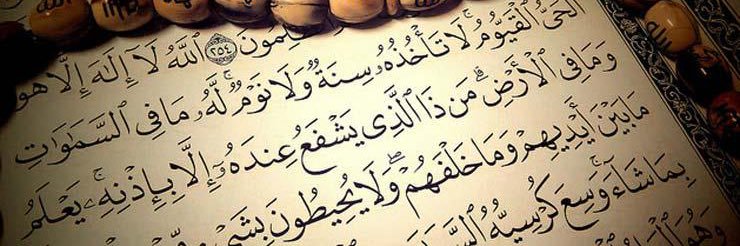 ـلمون ٢٥٤ ٱللَّهُ لَآ إِلَٰهَ إِلَّا هُوَ
ٱلۡحَيُّ ٱلۡقَيُّومُۚ لَا تَأۡخُذُهُۥ سِنَةٞ وَلَا نَوۡمٞۚ لَّهُۥ مَا فِي ٱلسَّمَٰوَٰتِ
وَمَا فِي ٱلۡأَرۡضِۗ مَن ذَا ٱلَّذِي يَشۡفَعُ عِندَهُۥٓ إِلَّا بِإِذۡنِهِۦۚ يَعۡلَمُ
مَا بَيۡنَ أَيۡدِيهِمۡ وَمَا خَلۡفَهُمۡۖ وَلَا يُحِيطُونَ بِشَيۡ
بِمَا شَآءَۚ وَسِعَ كُرۡسِيُّهُ ٱلسَّ
وَهُوَ